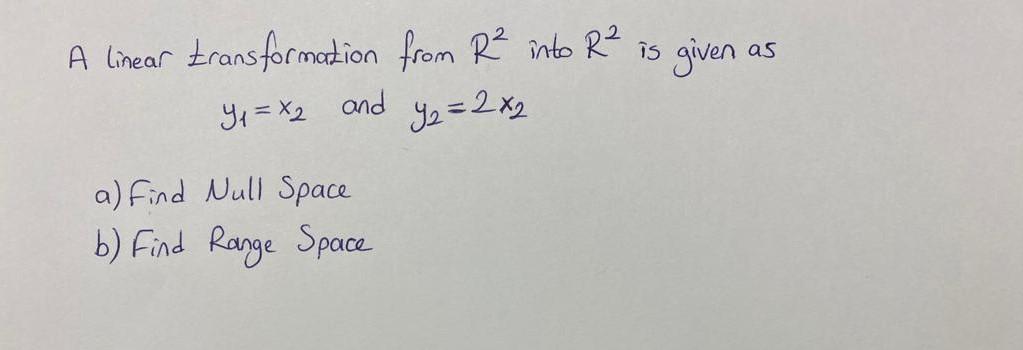 A linear transformation from R² into R² is given as
y₁ = x₂ and y₂ = 2x₂
a) Find Null Space
b) Find Range Space